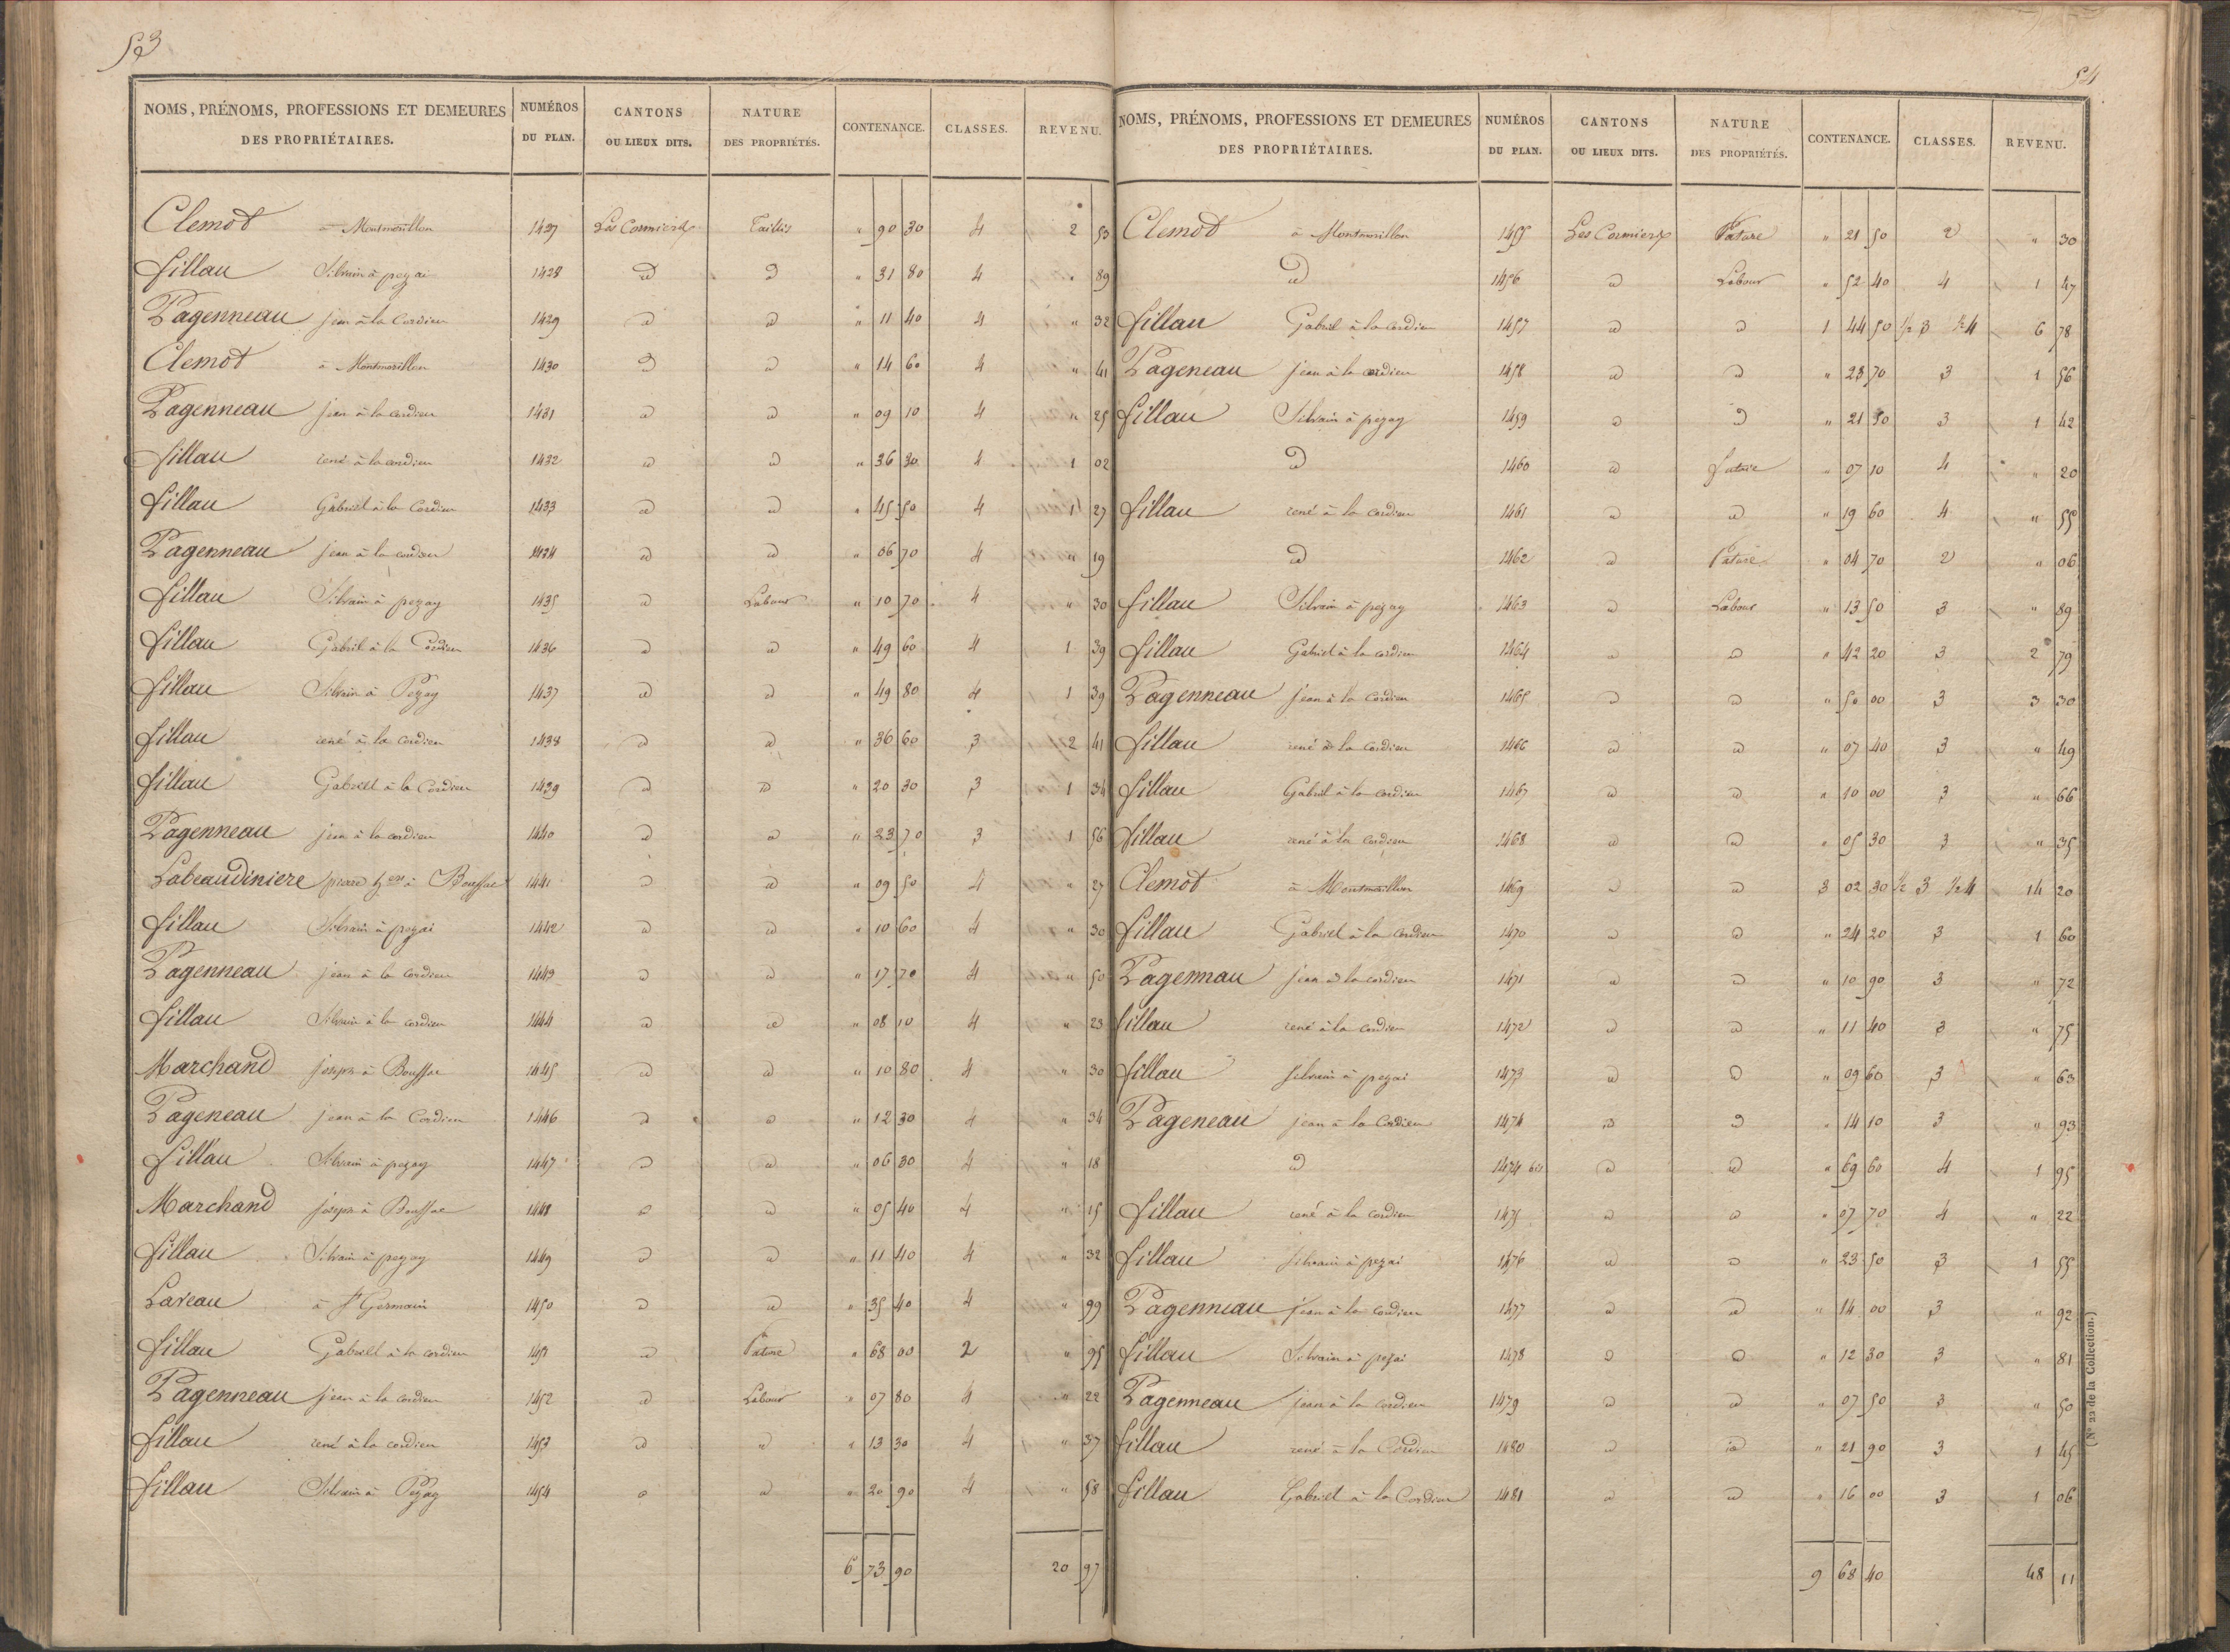 53
NOMS, PRÉNOMS, PROFESSIONS ET DEMEURES DES PROPRIÉTAIRES. NUMÉROS DU PLAN. CANTONS OU LIEUX DITS. NATURE DES PROPRIÉTÉS. CONTENANCE. CLASSES. REVENU.
Clemot à Montmorillon 1427 Les Cormiers Taillis " 90 30 4 2 53
fillau Silvain à pezai 1428 d d " 31 80 4 " 89
Pagenneau jean à la Cordieu 1429 d d " 11 40 4 " 32
Clemot à Montmorillon 1430 d d " 14 60 4 " 41
Pagenneau jean à la cordieu 1431 d d " 09 10 4 " 25
fillau rené à la cordieu 1432 d d " 36 30 4 1 02
fillau Gabriel à la Cordieu 1433 d d " 45 50 4 1 27
Pagenneau jean à la cordieu 1434 d d " 06 70 4 " 19
fillau Silvain à pezay 1435 d Labour " 10 70 4 " 30
fillau Gabriel à la Cordieu 1436 d d " 49 60 4 1 39
fillau Silvain à Pezay 1437 d d " 49 80 4 1 39
fillau rené à la Cordieu 1438 d d " 36 60 3 2 41
fillau Gabriel à la Cordieu 1439 d d " 20 30 3 1 34
Pagenneau jean à la cordieu 1440 d d " 23 70 3 1 56
Labeaudiniere pierre à Bouffac 1441 d d " 09 50 4 " 27
fillau Silvain à pezai 1442 d d " 10 60 4 " 30
Pagenneau jean à la cordieu 1443 d d " 17 70 4 " 50
fillau Silvain à la cordieu 1444 d d " 08 10 4 " 23
Marchand joseph à Bouffac 1445 d d " 10 80 4 " 30
Pageneau jean à la Cordieu 1446 d d " 12 30 4 " 34
fillau Silvain à pezay 1447 d d " 06 30 4 " 18
Marchand joseph à Bouffac 1448 d d " 05 40 4 " 15
fillau Silvain à pezay 1449 d d " 11 40 4 " 32
Lareau à St Germain 1450 d d " 35 40 4 " 99
fillau Gabriel à la cordieu 1451 d Pature " 68 00 2 " 95
Pagenneau jean à la cordieu 1452 d Labour " 07 80 4 " 22
fillau rené à la cordieu 1453 d d " 13 30 4 " 37
fillau Silvain à Pezay 1454 d d " 20 90 4 " 58
6 73 90 20 97
54
NOMS, PRÉNOMS, PROFESSIONS ET DEMEURES DES PROPRIÉTAIRES. NUMÉROS DU PLAN. CANTONS OU LIEUX DITS. NATURE DES PROPRIÉTÉS. CONTENANCE. CLASSES. REVENU.
Clemot à Montmorillon 1455 Les Cormiers Pature " 21 50 2 " 30
d 1456 d Labour " 52 40 4 1 47
fillau Gabriel à la cordieu 1457 d d 1 44 50 ½ 3 ½ 4 6 78
Pageneau jean à la cordieu 1458 d d " 23 70 3 1 56
fillau Silvain à pezay 1459 d d " 21 50 3 1 42
d 1460 d " 07 10 4 " 20
fillau rené à la cordieu 1461 d d " 19 60 4 " 55
d 1462 d Pature " 04 70 2 " 06
fillau Silvain à pezay 1463 d Labour " 13 50 3 " 89
fillau Gabriel à la cordieu 1464 d d " 42 20 3 2 79
Pagenneau jean à la cordieu 1465 d d " 50 00 3 3 30
fillau rené à la cordieu 1466 d d " 07 40 3 " 49
fillau Gabriel à la cordieu 1467 d d " 10 00 3 " 66
fillau rené à la cordieu 1468 d d " 05 30 3 " 35
Clemot à Montmorillon 1469 d d 3 02 30 ½ 3 ½ 4 14 20
fillau Gabriel à la Cordieu 1470 d d " 24 20 3 1 60
Pagennau jean à la cordieu 1471 d d " 10 90 3 " 72
fillau rené à la cordieu 1472 d d " 11 40 3 " 75
fillau silvain à pezai 1473 d d " 09 60 3 " 63
Pageneau jean à la Cordieu 1474 d d " 14 10 3 " 93
d 1474 bis d d " 69 60 4 1 95
fillau rené à la cordieu 1475 d d " 07 70 4 " 22
fillau silvain à pezai 1476 d d " 23 50 3 1 55
Pagenneau jean à la cordieu 1477 d d " 14 00 3 " 92
fillau Silvain à pezai 1478 d d " 12 30 3 " 81
Pagenneau jean à la cordieu 1479 d d " 07 50 3 " 50
fillau rené à la Cordieu 1480 d d " 21 90 3 1 45
fillau Gabriel à la Cordieu 1481 d d " 16 00 3 1 06
9 68 40 48 11
(N° 22 de la Collection.)